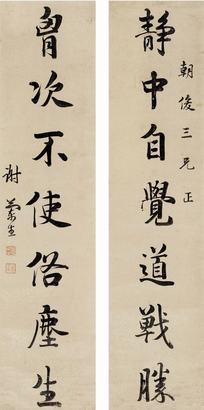 朝俊三兄正
静中自覺道戰勝
胷次不使俗塵生
謝蘭生